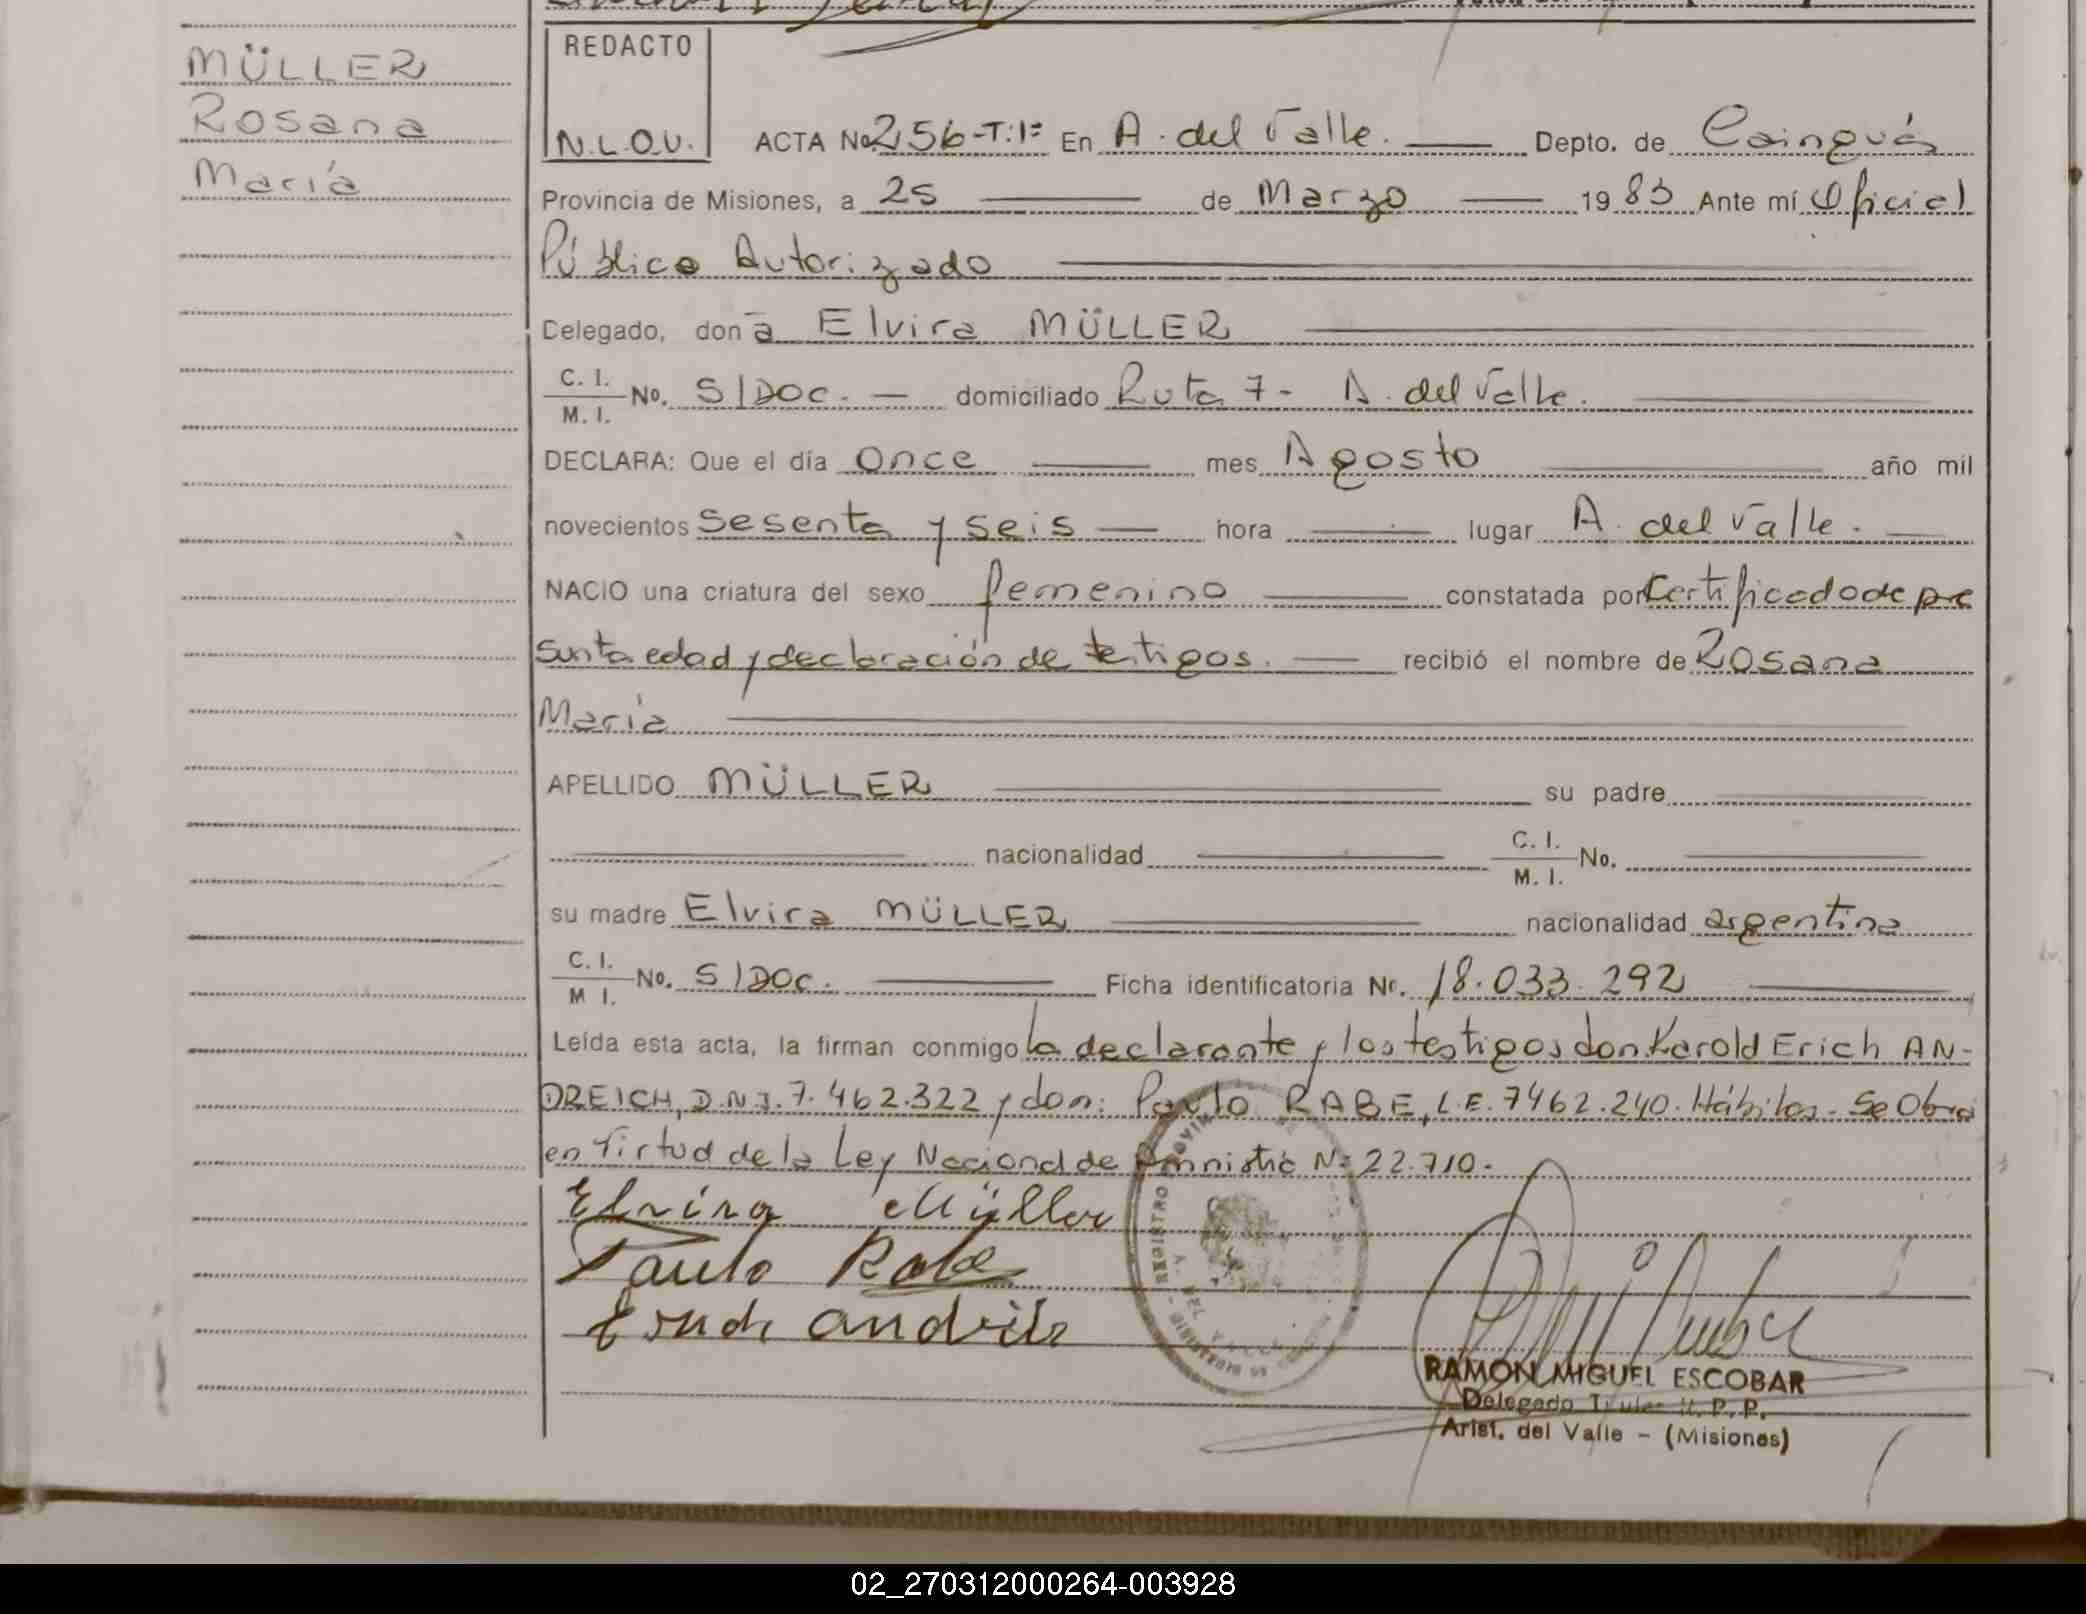 MÜLLER
Rosana
María
REDACTO
N.L.O.V.
ACTA No 256-T:1º En A. del Valle. Depto. de Cainguás
Provincia de Misiones, a 25 de Marzo 1983 Ante mí Oficial
Público Autorizado
Celegado, don a Elvira MÜLLER
C. I.
M. I. No. S/DOC. domiciliado Ruta 7- A. del Valle.
DECLARA: Que el día once mes Agosto año mil
novecientos sesenta y seis hora lugar A. del Valle.
NACIO una criatura del sexo femenino constatada por Certificado de pre
sunta edad y declaración de testigos. recibió el nombre de Rosana
María
APELLIDO MÜLLER su padre
nacionalidad C. I.
M. I. No.
su madre Elvira MÜLLER nacionalidad argentina
C. I.
M I. No. S/DOC. Ficha identificatoria Nº. 18.033.292
Leída esta acta, la firman conmigo la declarante y los testigos don Karold Erich AN-
DREICH, D.N.I. 7.462.322 y don: Paulo RABE, L.E. 7462.240. Hábiles. Se Obra
en Virtud de la Ley Nacional de Amnistía Nº 22.710.
Elvira Müller
Paulo Rabe
REGISTRO
RAMON MIGUEL ESCOBAR
Delegado Titular R. P. P.
Arist. del Valle - (Misiones)
02_270312000264-003928